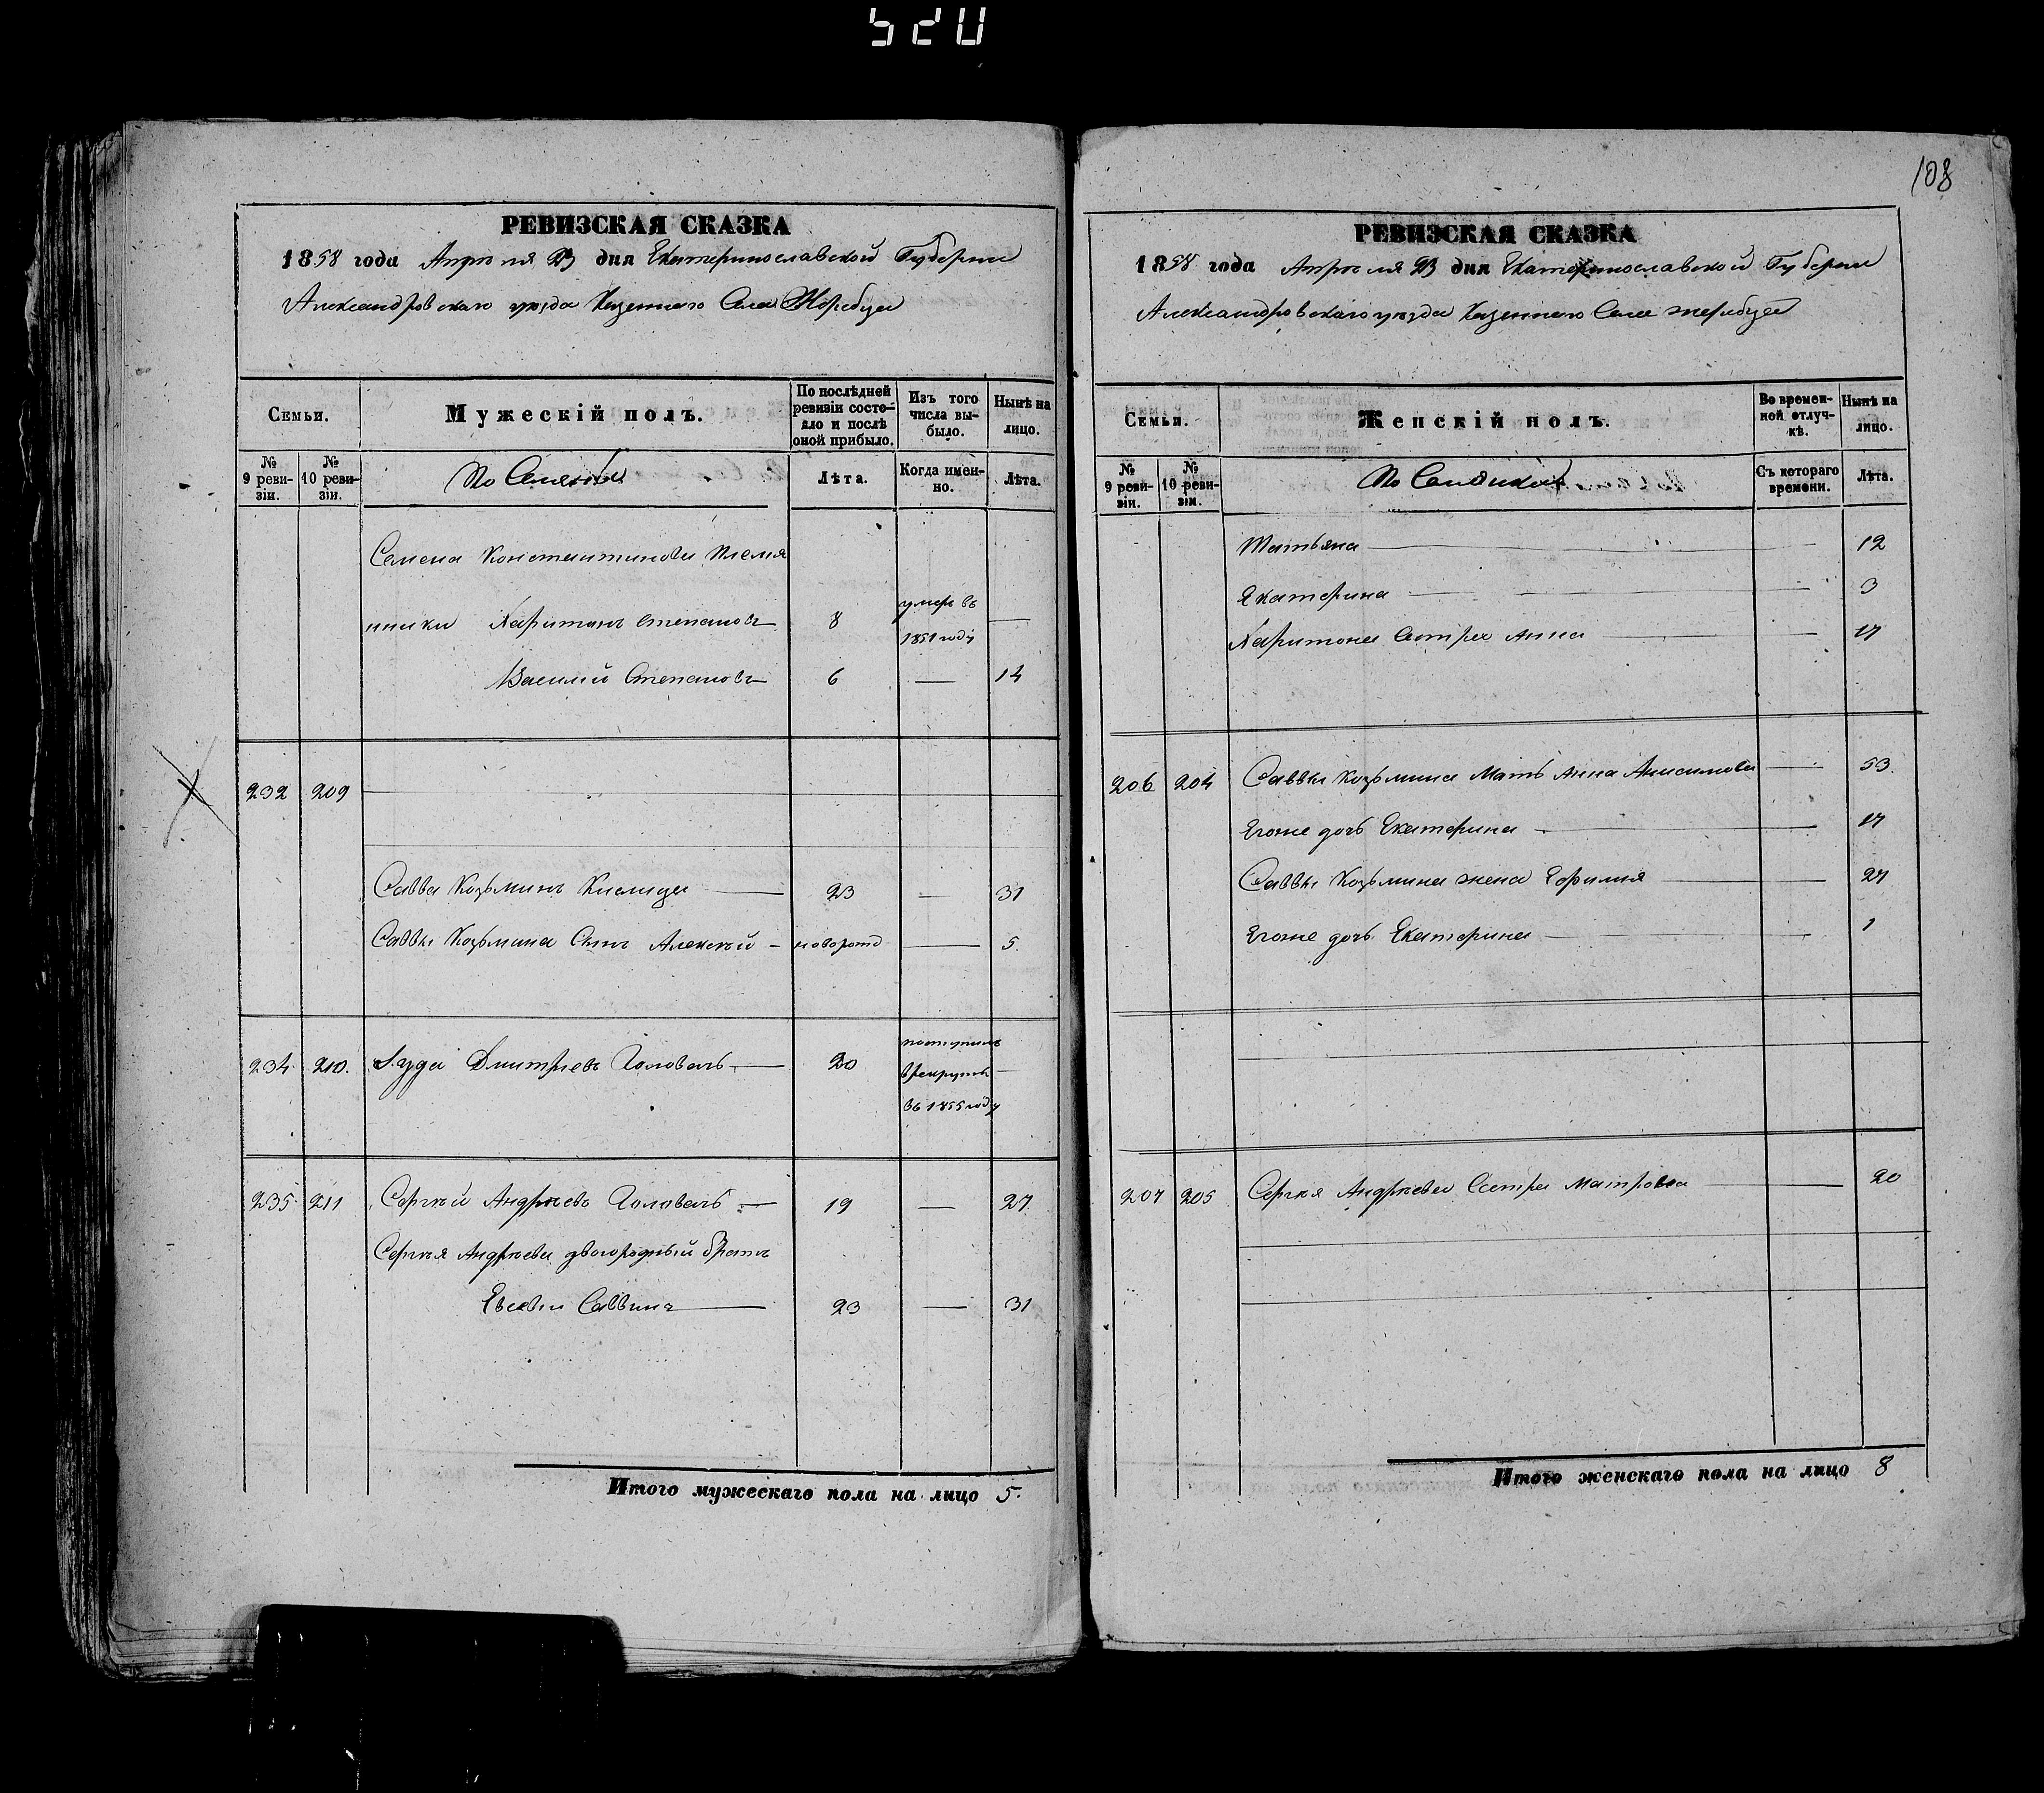 108
РЕВИЗСКАЯ СКАЗКА
1858 года Апрѣля 23 дня Екатеринославской Губернии
Александровскаго уѣзда Казеннаго Села Жеребца
Семьи.
Мужескій полъ.
По послѣдней ревизіи состояло и послѣ оной прибыло.
Изъ того числа выбыло.
Нынѣ на лицо.
№ 9 ревизіи.
№ 10 ревизіи.
Лѣта.
Когда именно.
Лѣта.
Семена Константинова племя
нники Харитонъ Степановъ 8 умеръ въ 1851 году —
Василий Степановъ 6 — 14
232 209
Савва Козьминъ 23 — 31
Саввы Козьмина Сынъ Алексѣй — новорожд — 5
234 210. Дмитріевъ Головань 20 поступилъ в рекруты въ 1855 году —
235 211 Сергѣй Андрѣевъ Головань — 19 — 27
Сергѣя Андрѣева двоюродный братъ
Евсевий Саввинъ 23 — 31
Итого мужескаго пола на лицо 5.
РЕВИЗСКАЯ СКАЗКА
1858 года Апрѣля 23 дня Екатеринославской Губернии
Александровскаго уѣзда Казеннаго Села Жеребца
Семьи.
Женскій полъ.
Во временной отлучкѣ.
Нынѣ на лицо.
№ 9 ревизіи.
№ 10 ревизіи.
Съ котораго времени.
Лѣта.
Татьяна — 12
Екатерина — 3
Харитона Сестра Анна — 17
206 204 Саввы Козьмина Мать Анна Анисимова — 53
Егоже дочь Екатерина — 17
Саввы Козьмина жена Ефимия 27
Егоже дочь Екатерина — 1
207 205 Сергѣя Андрѣева Сестра Матрона — 20
Итого женскаго пола на лицо 8